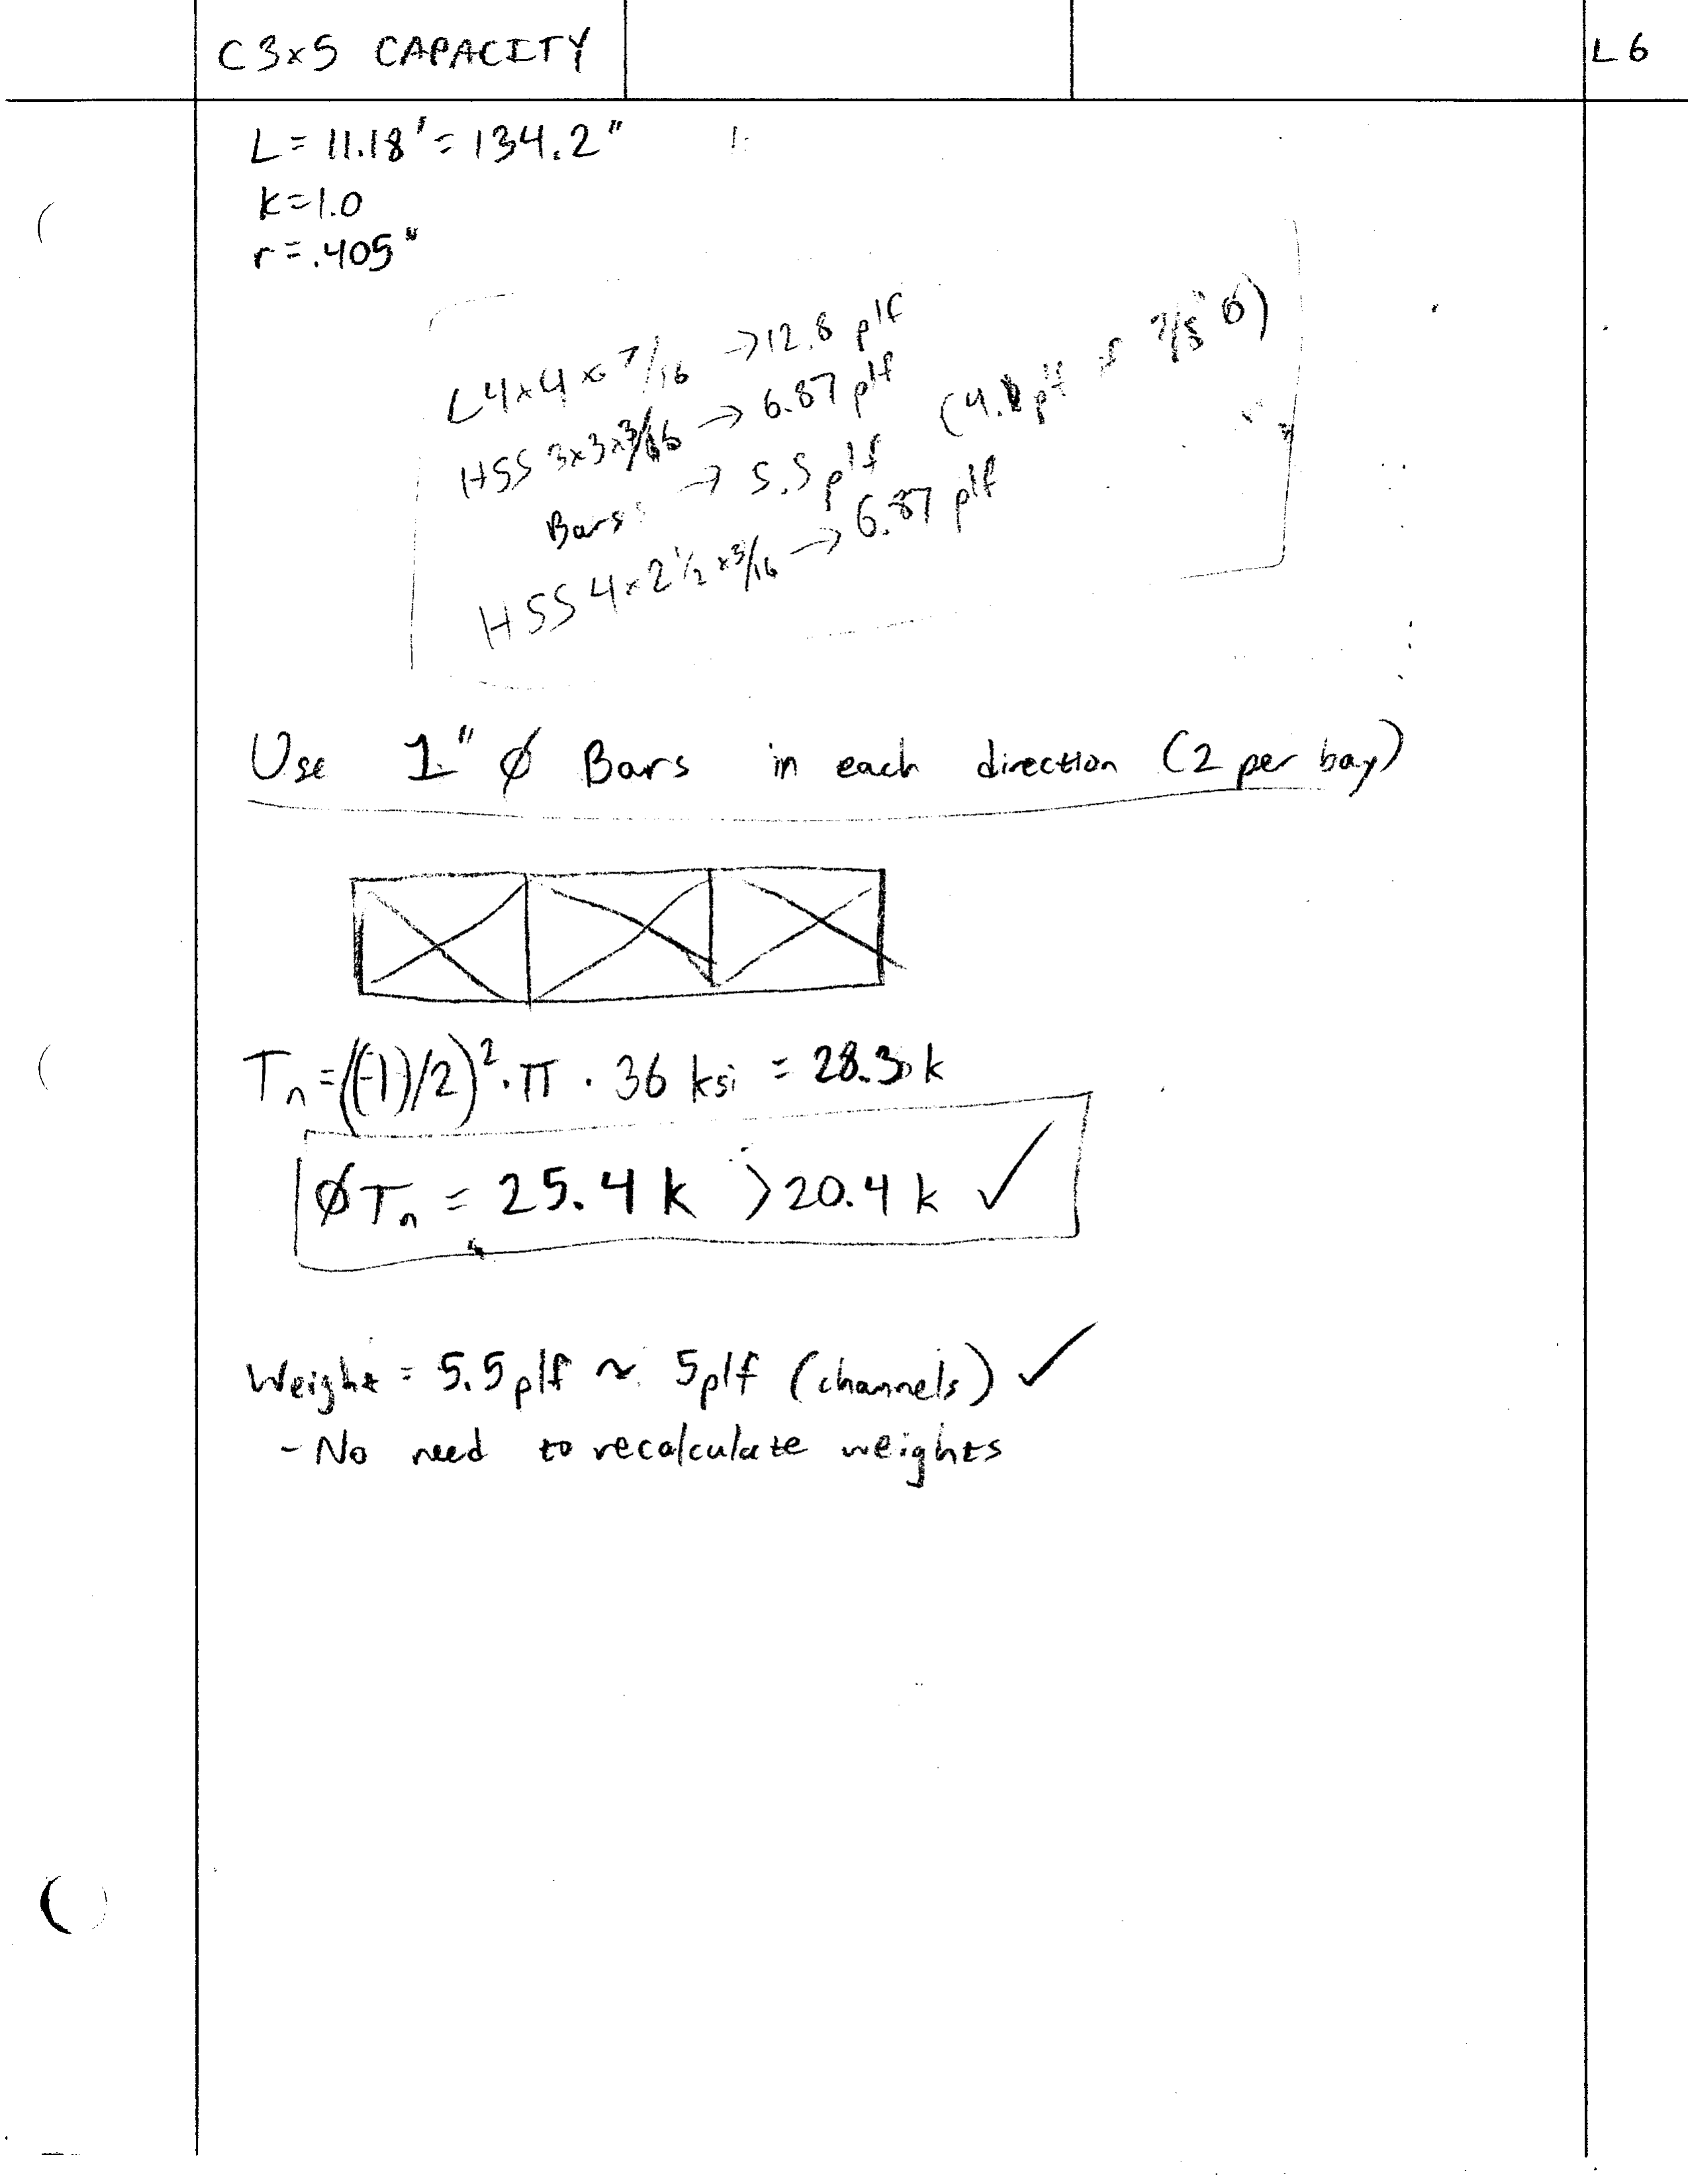 C3x5 CAPACITY
L6
L = 11.18' = 134.2"
k=1.0
r = .405"
L4x4x7/16 → 12.8 plf
HSS 3x3x3/16 → 6.87 plf
Bars → 5.5 plf (4. plf if 7/8" Ø)
HSS 4x2 1/2 x3/16 → 6.87 plf
Use 1" Ø Bars in each direction (2 per bay)
Tn = ((1)/2)² · π · 36 ksi = 28.3 k
ØTn = 25.4 k > 20.4 k ✓
Weight = 5.5plf ~ 5plf (channels) ✓
- No need to recalculate weights